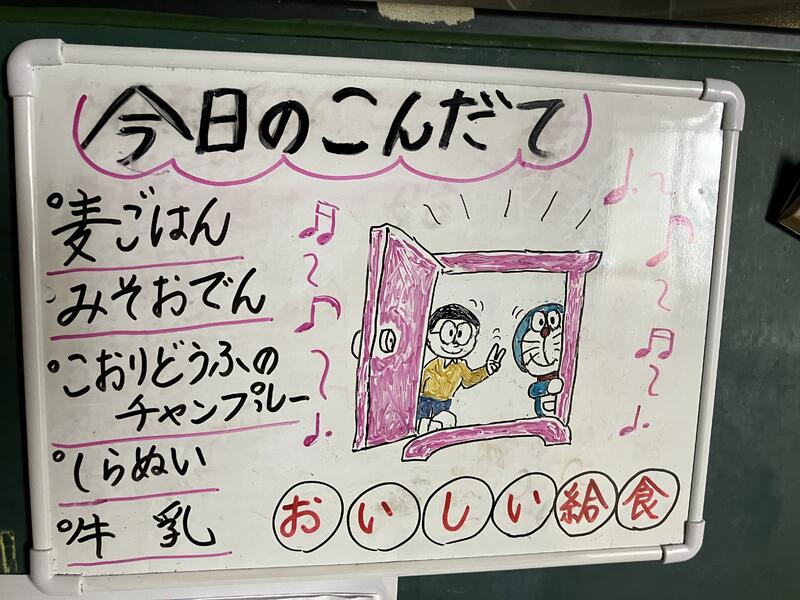 今日のこんだて
麦ごはん
みそおでん
こおりどうふの
チャンプルー
しらぬい
牛乳
おいしい給食